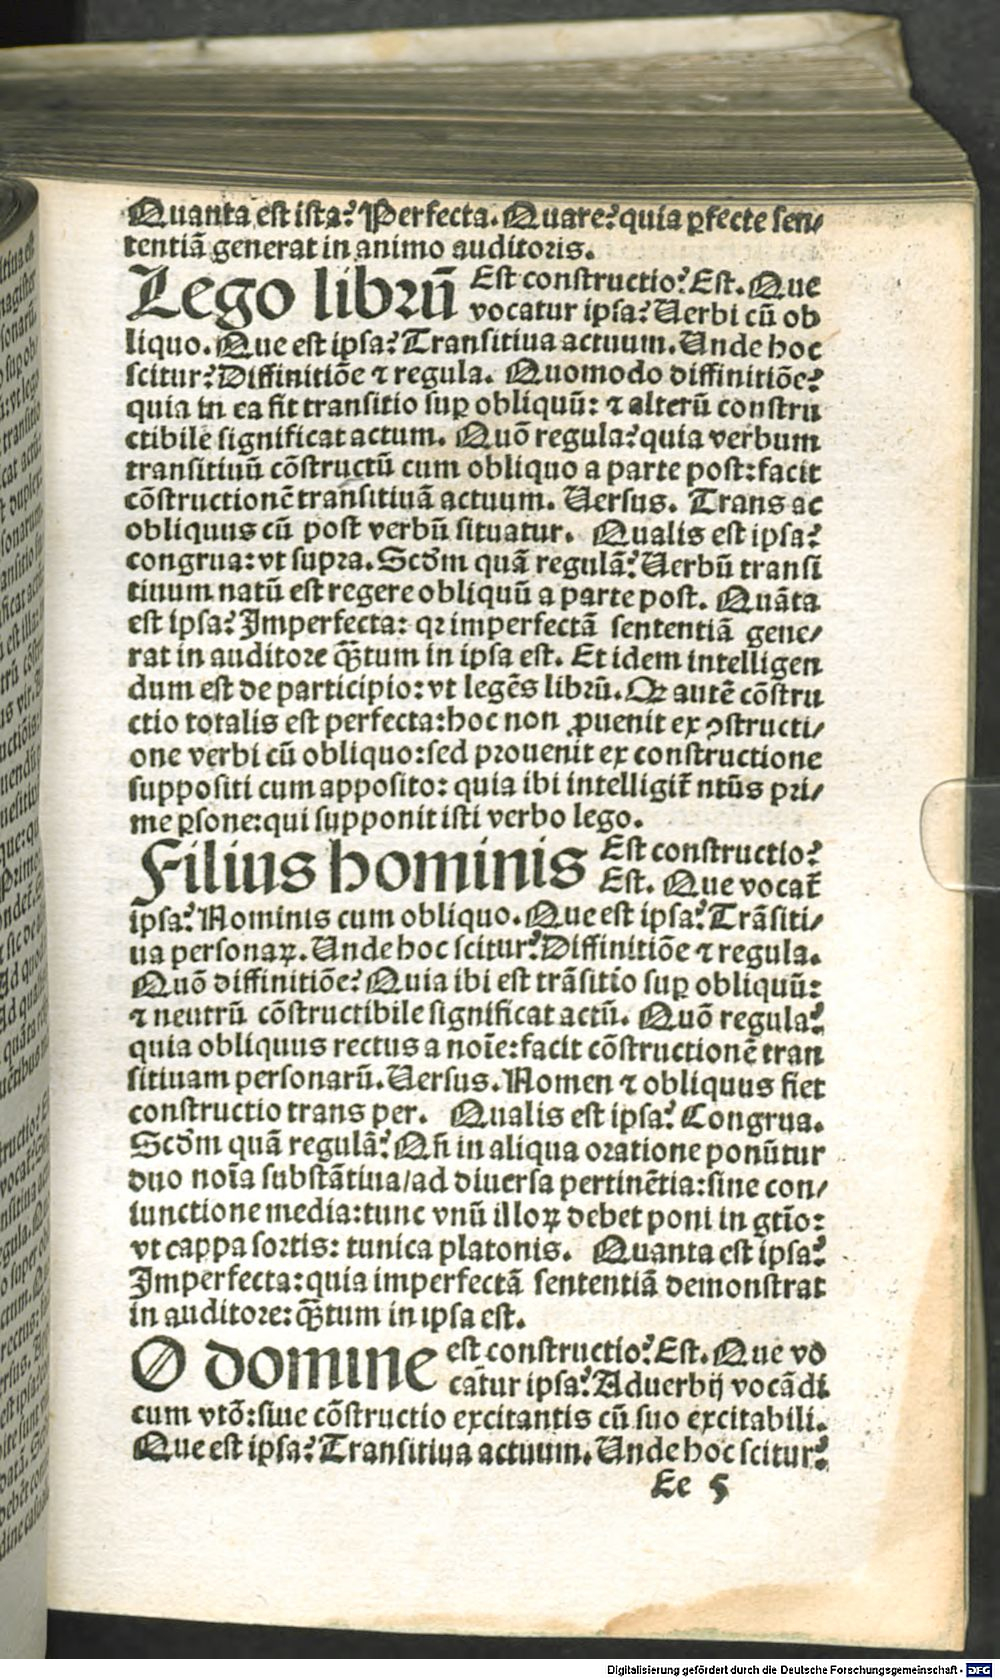 Quanta est ista? Perfecta. Quare? quia ꝑfecte sen⸗
tentiā generat in animo auditoris.
Lego librū Est constructio? Est. Que
vocatur ipsa? Uerbi cū ob
liquo. Que est ipsa? Transitiua actuum. Unde hoc
scitur? Diffinitiōe ⁊ regula. Quomodo diffinitiōe?
quia in ea fit transitio suꝑ obliquū: ⁊ alterū constru
ctibile significat actum. Quō regula? quia verbum
transitiuū cōstructū cum obliquo a parte post: facit
cōstructionē transitiuā actuum. Uersus. Trans ac
obliquus cū post verbū situatur. Qualis est ipsa?
congrua: vt supra. Scdm̄ quā regulā? Uerbū transi
tiuum natū est regere obliquū a parte post. Quāta
est ipsa? Imperfecta: qꝛ imperfectā sententiā gene⸗
rat in auditore qꝫ̄tum in ipsa est. Et idem intelligen
dum est de participio: vt legēs librū. Qꝛ autē cōstru
ctio totalis est perfecta: hoc non ꝓuenit ex ꝯstructi⸗
one verbi cū obliquo: sed prouenit ex constructione
suppositi cum apposito: quia ibi intelligit̄ ntūs pri⸗
me ꝑsone: qui supponit isti verbo lego.
Filius hominis Est constructio?
Est. Que vocat̄
ipsa? Nominis cum obliquo. Que est ipsa? Trāsiti⸗
ua personaꝝ. Unde hoc scitur? Diffinitiōe ⁊ regula.
Quō diffinitiōe? Quia ibi est trāsitio suꝑ obliquū:
⁊ neutrū cōstructibile significat actū. Quō regula?
quia obliquus rectus a noīe: facit cōstructionē tran
sitiuam personarū. Uersus. Nomen ⁊ obliquus fiet
constructio trans per. Qualis est ipsa? Congrua.
Scdm̄ quā regulā? Qn̄ in aliqua oratione ponūtur
duo noīa substātiua/ad diuersa pertinētia: sine con⸗
iunctione media: tunc vnū illoꝝ debet poni in gtīo:
vt cappa sortis: tunica platonis. Quanta est ipsa?
Imperfecta: quia imperfectā sententiā demonstrat
in auditore: qꝫ̄tum in ipsa est.
O domine est constructio? Est. Que vo
catur ipsa? Aduerbij vocādi
cum vtō: siue cōstructio excitantis cū suo excitabili.
Que est ipsa? Transitiua actuum. Unde hoc scitur?
Ee 5
Digitalisierung gefördert durch die Deutsche Forschungsgemeinschaft - DFG